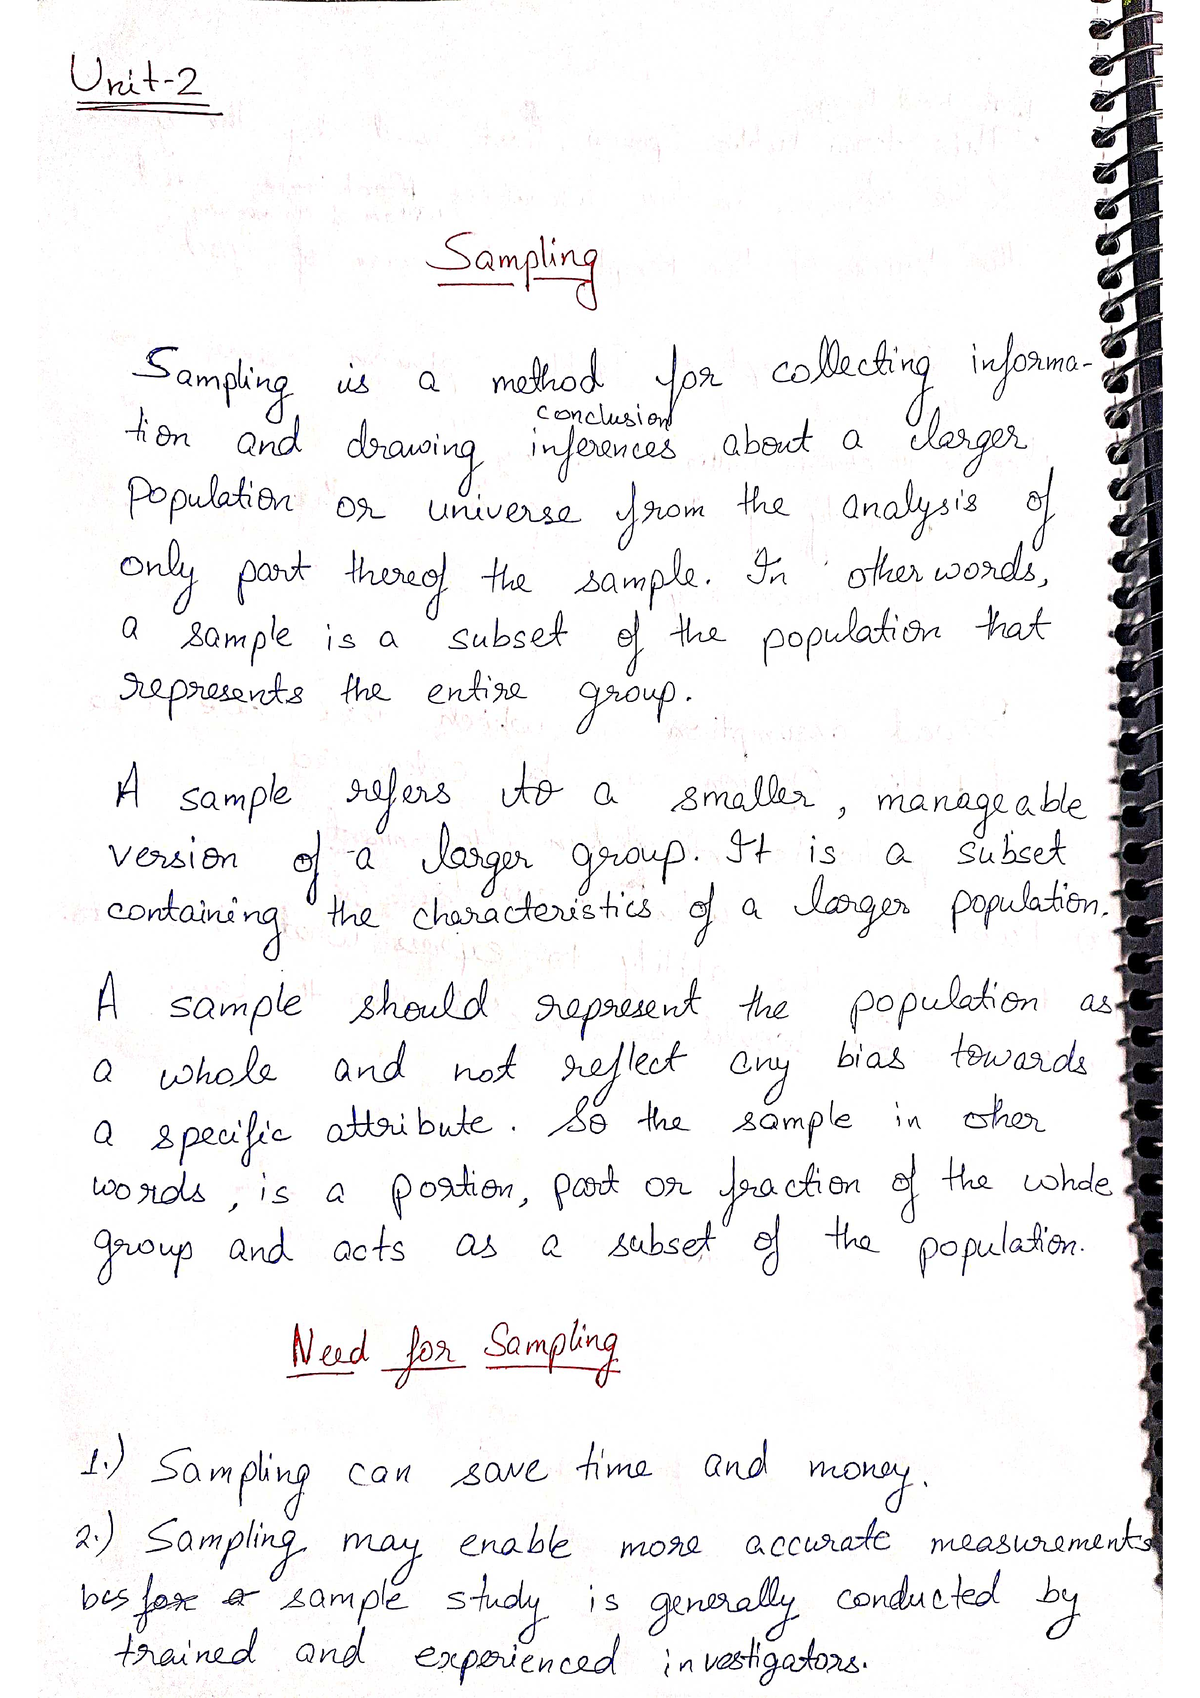 Unit-2
Sampling
Sampling is a method for collecting informa-
conclusion
tion and drawing inferences about a larger
population or universe from the analysis of
only part thereof the sample. In other words,
a sample is a subset of the population that
represents the entire group.
A sample refers to a smaller, manageable
version of a larger group. It is a subset
containing the characteristics of a larger population.
A sample should represent the population as
a whole and not reflect any bias towards
a specific attribute. So the sample in other
words, is a portion, part or fraction of the whole
group and acts as a subset of the population.
Need for Sampling
1.) Sampling can save time and money.
2.) Sampling may enable more accurate measurements
sample study is generally conducted by
trained and experienced investigators.